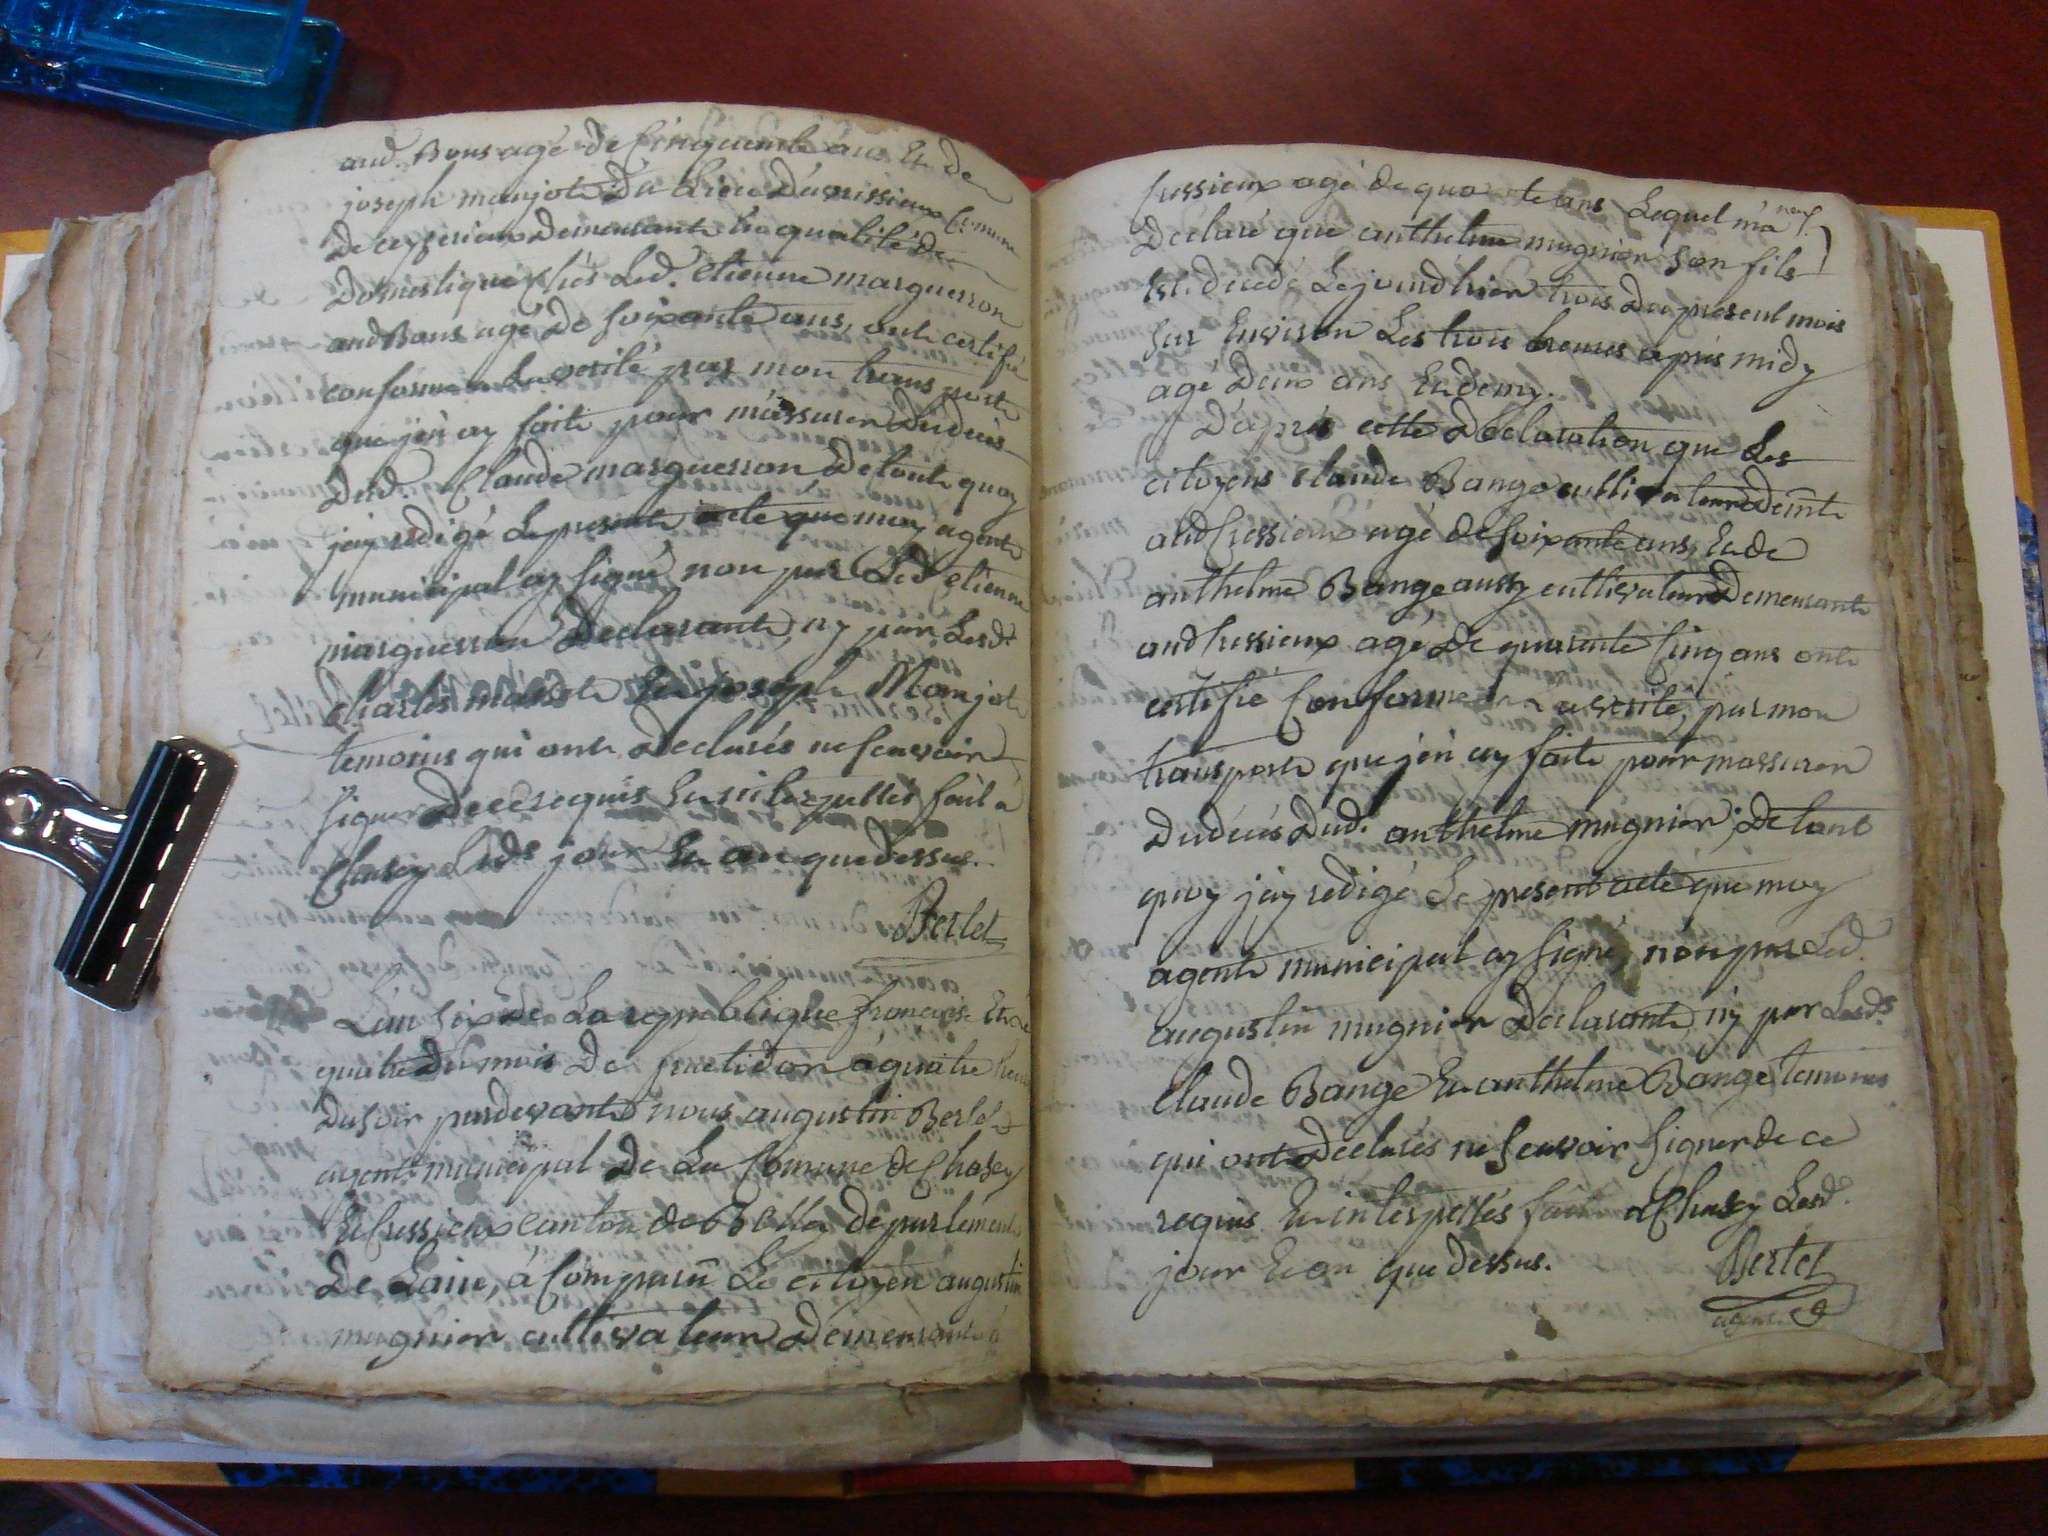 aud. Bons agé de Cinquante ans Et de
joseph monjot du Lieu
de ceyzerieux demeurant En qualité de
Domestique chés Led. etienne marguerron
aud Bons agé de soixante ans, ont certifié
conforme a La verité par mon transporte
que jén ay fait pour m'assurer du decés
Dud. Claude marguerron de tout quoy
jay redigé Le present acte que moy agent
municipal ay signé non par Led etienne
marguerron Declarant, ny par Lesdt
charles Et joseph Monjot
temoins qui ont Declarés ne scavoir
signer De ce requis Et interpellés fait à
Chasey Lesds jour Et an que dessus.
Bertet
L'an six de La republique francaise Et Le
quatre du mois De fructidor à quatre heures
Du soir pardevant nous augustin Bertet
agent municipal de La Comune de Chasey
Et Cressieux canton de Belley département
De Lain, à Comparu Le citoyen augustin
mugnier cultivateur Demeurant à
Cressieux agé de quarante ans Lequel m'a
neuf.
Déclaré que anthelme mugnier son fils
Est decedé Le jourdhier trois du present mois
sur Environ Les trois heures après midy
agé Deux ans Et demy.
D'après cette Déclaration que Les
citoyens claude Bange cultivateur
aud Cressieux agé de soixante ans, Et de
anthelme Bange aussy cultivateur Demeurant
aud Cressieux agé De quarante Cinq ans ont
certifié Conforme a La verité, par mon
transporte que jén ay fait pour massurer
Du decés Dud. anthelme mugnier; De tout
quoy jay redigé Le present acte que moy
agent municipal ay signé, non par Led.
augustin mugnier Declarant, ny par Lesds.
Claude Bange Et anthelme Bange temoins
qui ont Declarés ne scavoir signer de ce
requis Et interpellés fait a Chasey Lesd.
jour Et an que dessus.
Bertet
agent